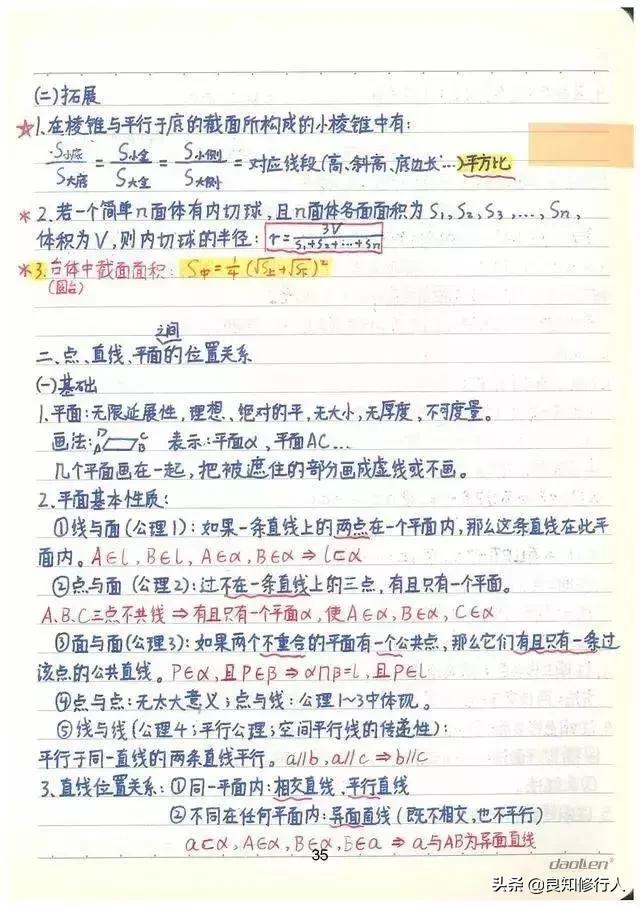 (二)拓展
☆1.在棱锥与平行于底的截面所构成的小棱锥中有:
S小底/S大底 = S小全/S大全 = S小侧/S大侧 = 对应线段(高、斜高、底边长…)平方比
*2.若一个简单n面体有内切球,且n面体各面面积为S₁,S₂,S₃,…,Sn,
体积为V,则内切球的半径: r=3V/(S₁+S₂+…+Sn)
*3.台体中截面面积: S中=1/4(√S上+√S下)²
(圆台)
之间
二、点、直线、平面的位置关系
(一)基础
1.平面:无限延展性,理想、绝对的平,无大小,无厚度,不可度量。
画法: A B C D 表示:平面α,平面AC…
几个平面画在一起,把被遮住的部分画成虚线或不画。
2.平面基本性质:
①线与面(公理1):如果一条直线上的两点在一个平面内,那么这条直线在此平
面内。A∈l,B∈l,A∈α,B∈α⇒l⊂α
②点与面(公理2):过不在一条直线上的三点,有且只有一个平面。
A.B.C三点不共线⇒有且只有一个平面α,使A∈α,B∈α,C∈α
③面与面(公理3):如果两个不重合的平面有一个公共点,那么它们有且只有一条过
该点的公共直线。P∈α,且P∈β⇒α∩β=l,且P∈l
④点与点:无太大意义;点与线:公理1~3中体现。
⑤线与线(公理4;平行公理;空间平行线的传递性):
平行于同一直线的两条直线平行。a∥b,a∥c⇒b∥c
3.直线位置关系:①同一平面内:相交直线、平行直线
②不同在任何平面内:异面直线(既不相交,也不平行)
a⊂α,A∈α,B∈α,B∈a⇒a与AB为异面直线
35
daolen®
头条@良知修行人